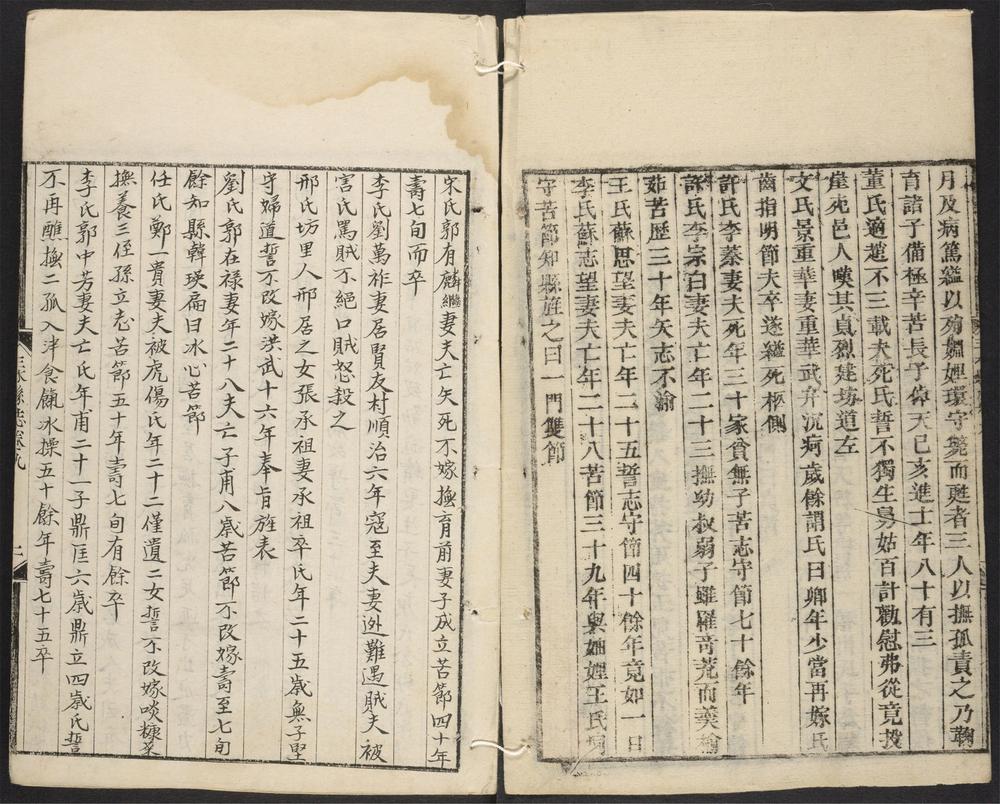 月及病篤縊以殉媼娌環守斃而甦者三人以撫孤責之乃鞠
育諸子備極辛苦長子仰天已亥進士年八十有三
董氏適趙不三載夫死氏誓不獨生舅姑百計勸慰弗從竟投
崖死邑人嘆其貞烈建坊道左
文氏景重華妻重華武弁沉疴歲餘謂氏曰卿年少當再嫁氏
齒指明節夫卒遂縊死柩側
許氏李蓁妻夫死年三十家貧無子苦志守節七十餘年
許氏李宗白妻夫亡年二十三撫幼叔弱子雖罹奇荒而羹
茹苦歷三十年矢志不渝
王氏蘇思望妻夫亡年二十五誓志守節四十餘年竟如一日
李氏蘇志望妻夫亡年二十八苦節三十九年與妯娌王氏
守苦節知縣旌之曰一門雙節
宋氏郭有麟繼妻夫亡矢死不嫁撫育前妻子成立苦節四十年
壽七旬而卒
李氏劉萬祚妻居賢友村順治六年寇至夫妻逃難遇賊夫被
害氏罵賊不絕口賊怒殺之
邢氏坊里人邢居之女張承祖妻承祖卒氏年二十五歲無子堅
守婦道誓不改嫁洪武十六年奉旨旌表
劉氏郭在祿妻年二十八夫亡子甫八歲苦節不改嫁壽至七旬
餘知縣韓瑛扁曰冰心苦節
任氏鄭一貴妻夫被虎傷氏年二十二僅遺二女誓不改嫁啖糠茶
撫養三侄孫立志苦節五十年壽七旬有餘卒
李氏郭中芳妻夫亡氏年甫二十一子鼎匡六歲鼎立四歲氏誓
不再醮撫二孤入泮食餼冰操五十餘年壽七十五卒